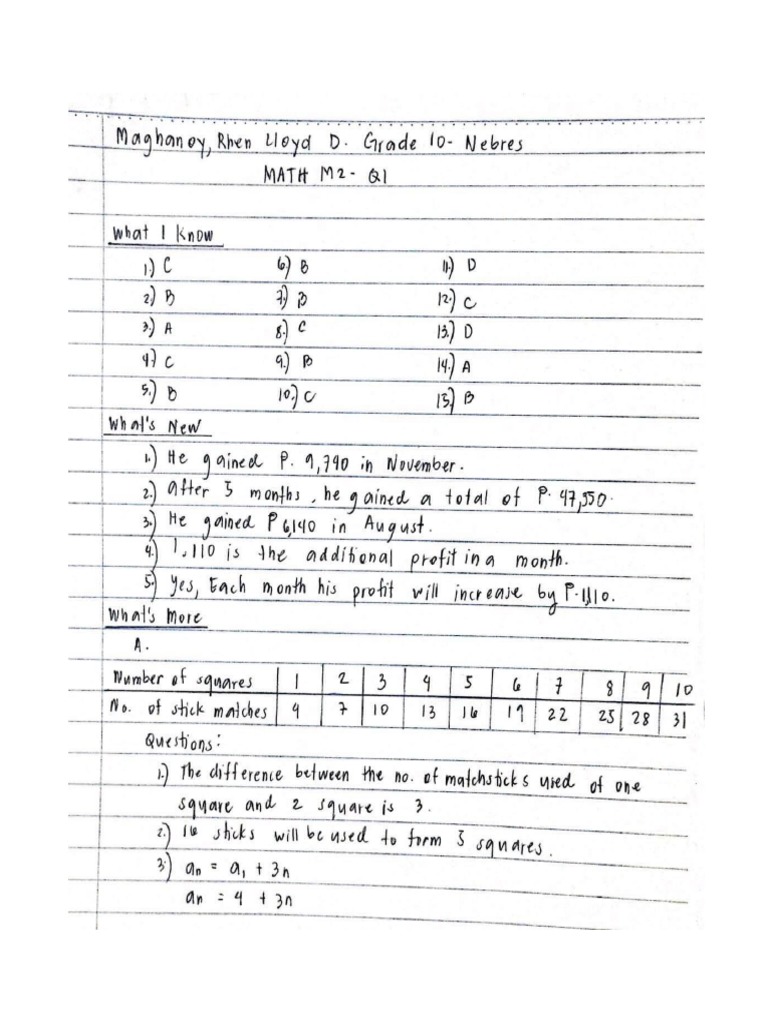 Maghanoy, Rhen Lloyd D. Grade 10- Nebres
MATH M2- Q1
What I Know
1.) C 6.) B 11.) D
2.) B 7.) B 12.) C
3.) A 8.) C 13.) D
4.) C 9.) B 14.) A
5.) B 10.) C 15.) B
What's New
1.) He gained P. 9,790 in November.
2.) After 5 months, he gained a total of P. 47,550.
3.) He gained P 6,140 in August.
4.) 1,110 is the additional profit in a month.
5.) Yes, Each month his profit will increase by P.1,110.
What's More
A.
Number of squares 1 2 3 4 5 6 7 8 9 10
No. of stick matches 4 7 10 13 16 19 22 25 28 31
Questions:
1.) The difference between the no. of matchsticks used of one
square and 2 square is 3.
2.) 16 sticks will be used to form 5 squares.
3.) an = a1 + 3n
an = 4 + 3n